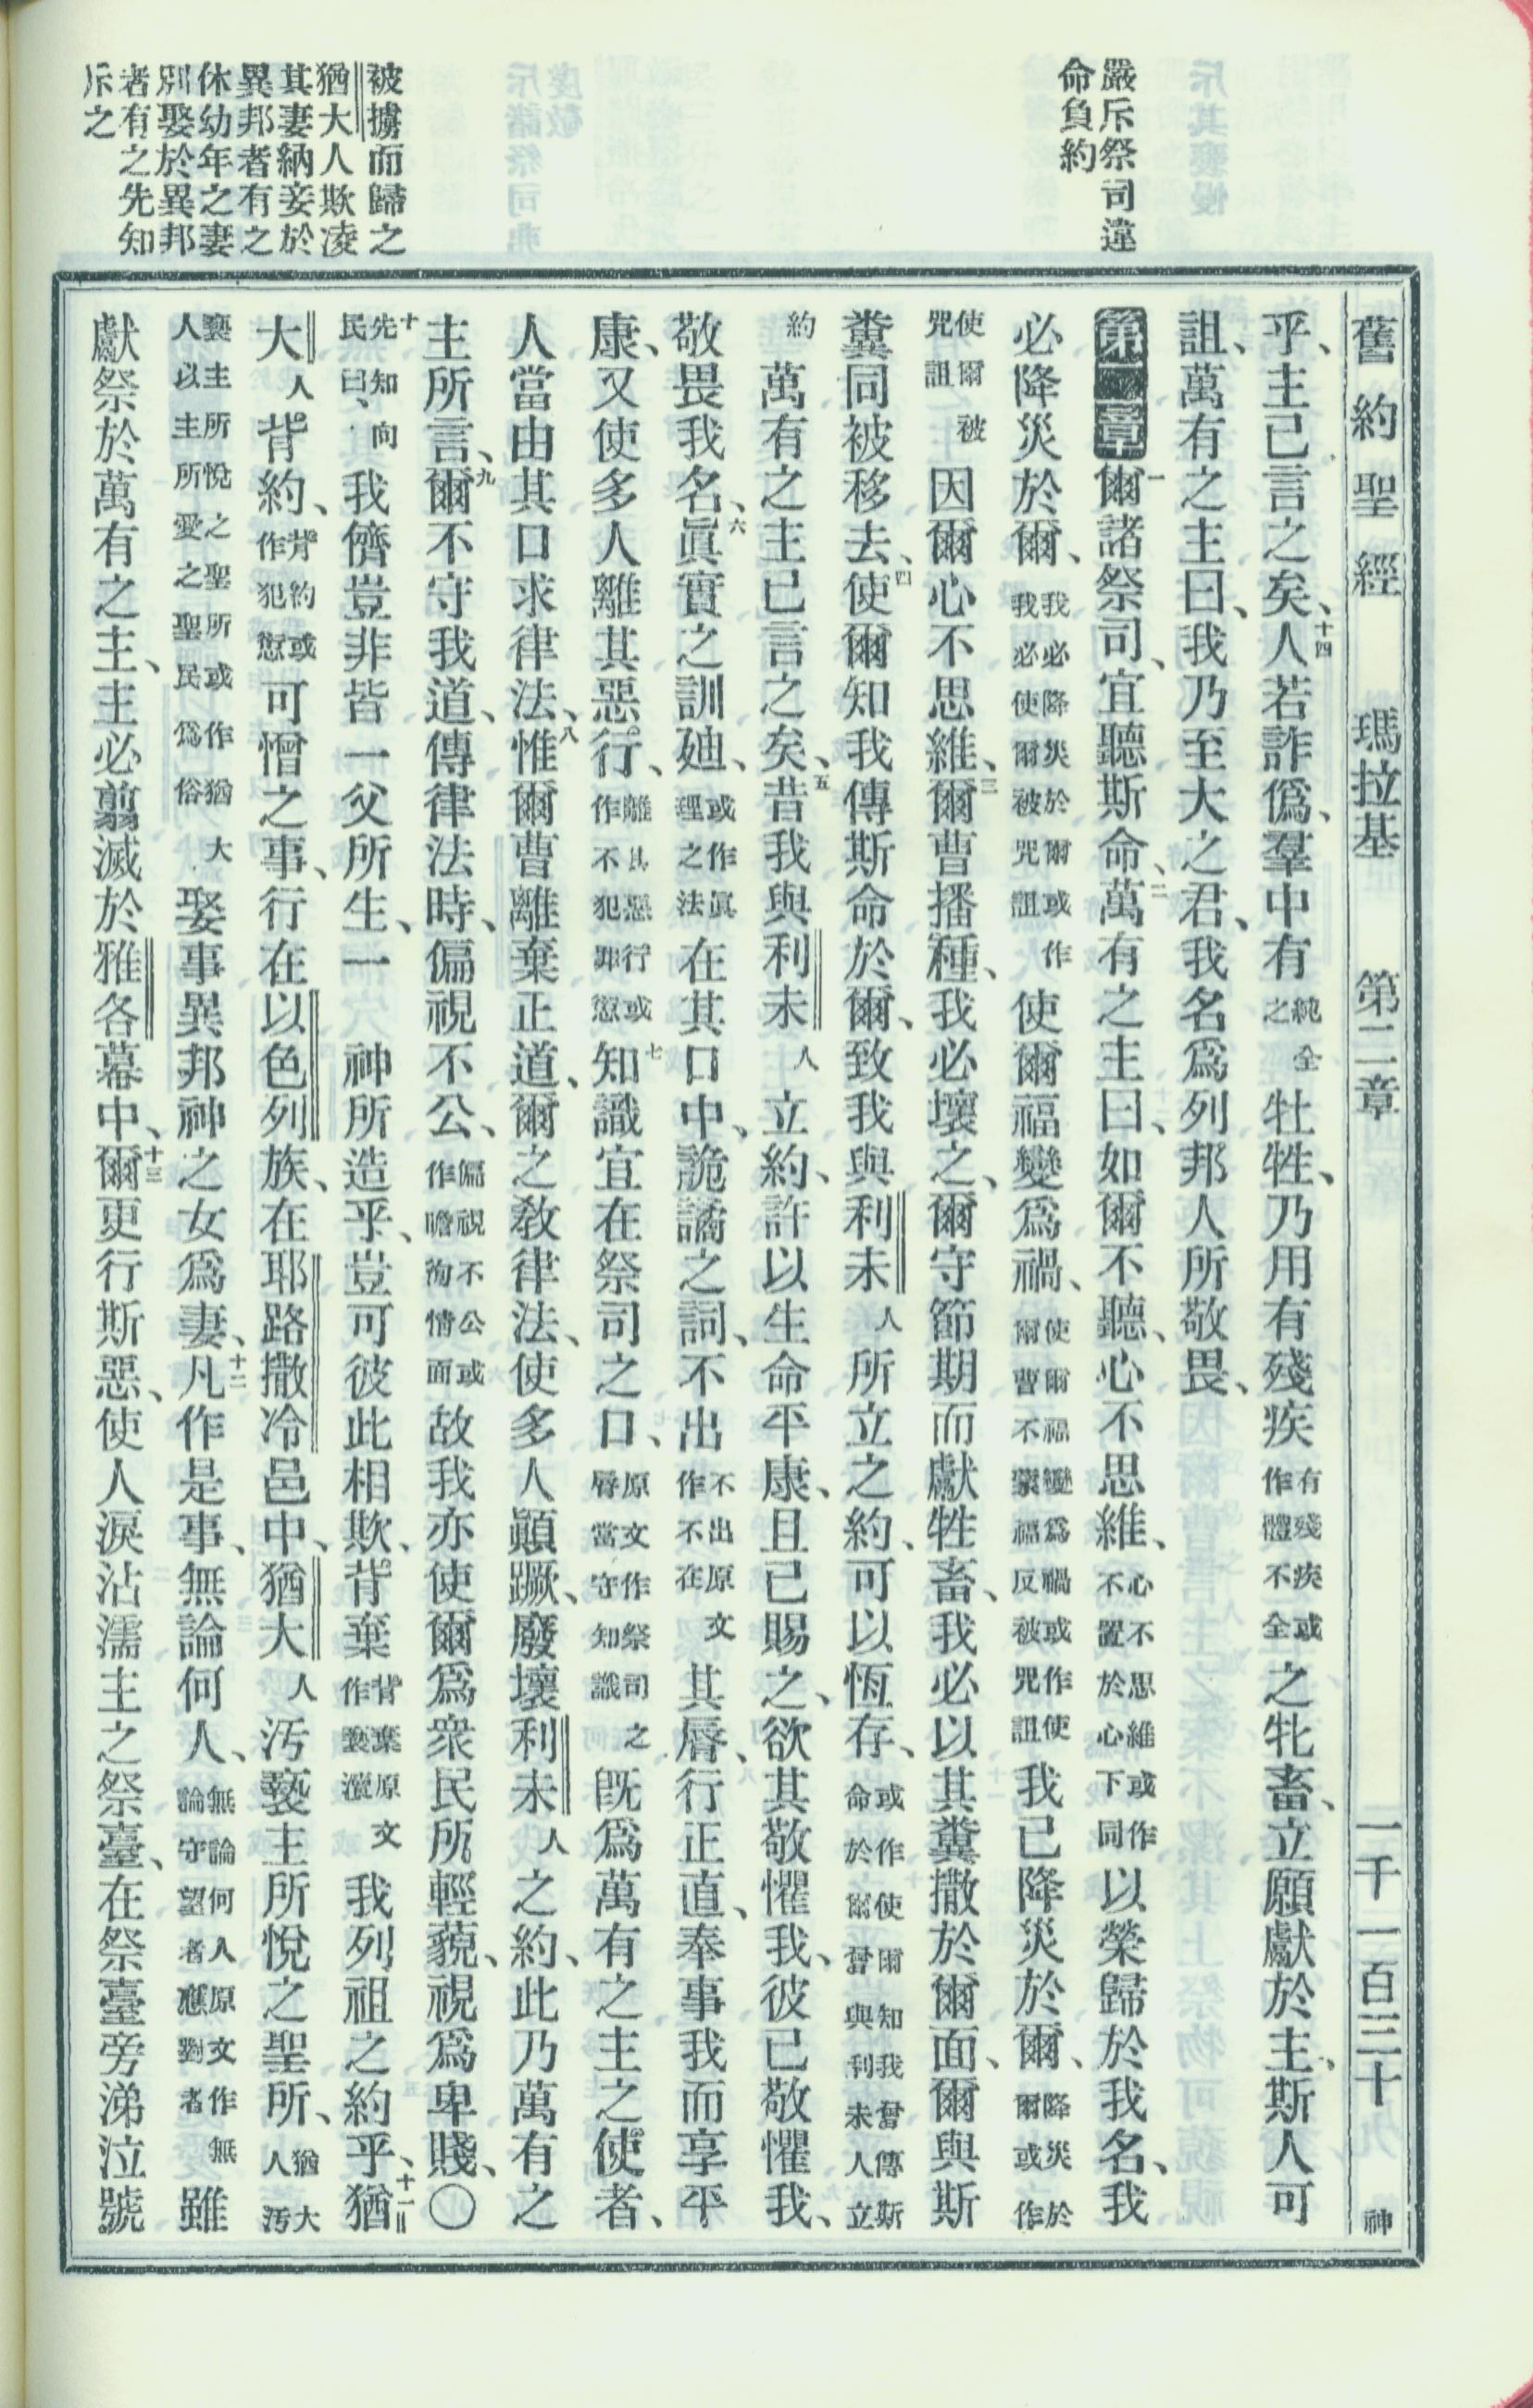 舊約聖經 瑪拉基 第二章 一千一百三十 神
嚴斥祭司違
命負約
被擄而歸之
猶大人欺凌
其妻納妾於
異邦者有之
休幼年之妻
別娶於異邦
者有之先知
斥之
乎、主已言之矣、十四人若詐僞、羣中有純全之牡牲、乃用有殘疾有殘疾或作體不全之牝畜、立願獻於主、斯人可
詛、萬有之主曰、我乃至大之君、我名爲列邦人所敬畏、
第二章 一爾諸祭司、宜聽斯命、二萬有之主曰、如爾不聽、心不思維、心不思維或作不置於心下同以榮歸於我名、我
必降災於爾、我必降災於爾或作我必使爾被咒詛使爾福變爲禍、使爾福變爲禍或作使爾曹不蒙福反被咒詛我已降災於爾、降災於爾或作
使爾被咒詛因爾心不思維、三爾曹播種、我必壞之、爾守節期而獻牲畜、我必以其糞撒於爾面、爾與斯
糞同被移去、四使爾知我傳斯命於爾、致我與利未人所立之約、可以恆存、或作使爾知我曾傳斯命於爾曾與利未人立
約萬有之主已言之矣、五昔我與利未人立約、許以生命平康、且已賜之、欲其敬懼我、彼已敬懼我、
敬畏我名、六眞實之訓廸、或作眞理之法在其口中、詭譎之詞、不出不出原文作不在其脣、行正直、奉事我而享平
康、又使多人離其惡行、離其惡行或作不犯罪愆七知識宜在祭司之口、原文作祭司之脣當守知識旣爲萬有之主之使者、
人當由其口求律法、八惟爾曹離棄正道、爾之敎律法、使多人顚蹶、廢壞利未人之約、此乃萬有之
主所言、九爾不守我道、傳律法時、偏視不公、偏視不公或作瞻徇情面故我亦使爾爲衆民所輕藐、視爲卑賤、〇
十先知向民曰、我儕豈非皆一父所生、一神所造乎、豈可彼此相欺、背棄背棄原文作褻瀆我列祖之約乎、十一猶
大人背約、背約或作犯愆可憎之事、行在以色列族、在耶路撒冷邑中、猶大人汚褻主所悅之聖所、猶大人汚
褻主所悅之聖所或作猶大人以主所愛之聖民爲俗娶事異邦神之女爲妻、十二凡作是事、無論何人、無論何人原文作無論守望者應對者雖
獻祭於萬有之主、主必翦滅於雅各幕中、十三爾更行斯惡、使人淚沾濡主之祭臺、在祭臺旁涕泣號